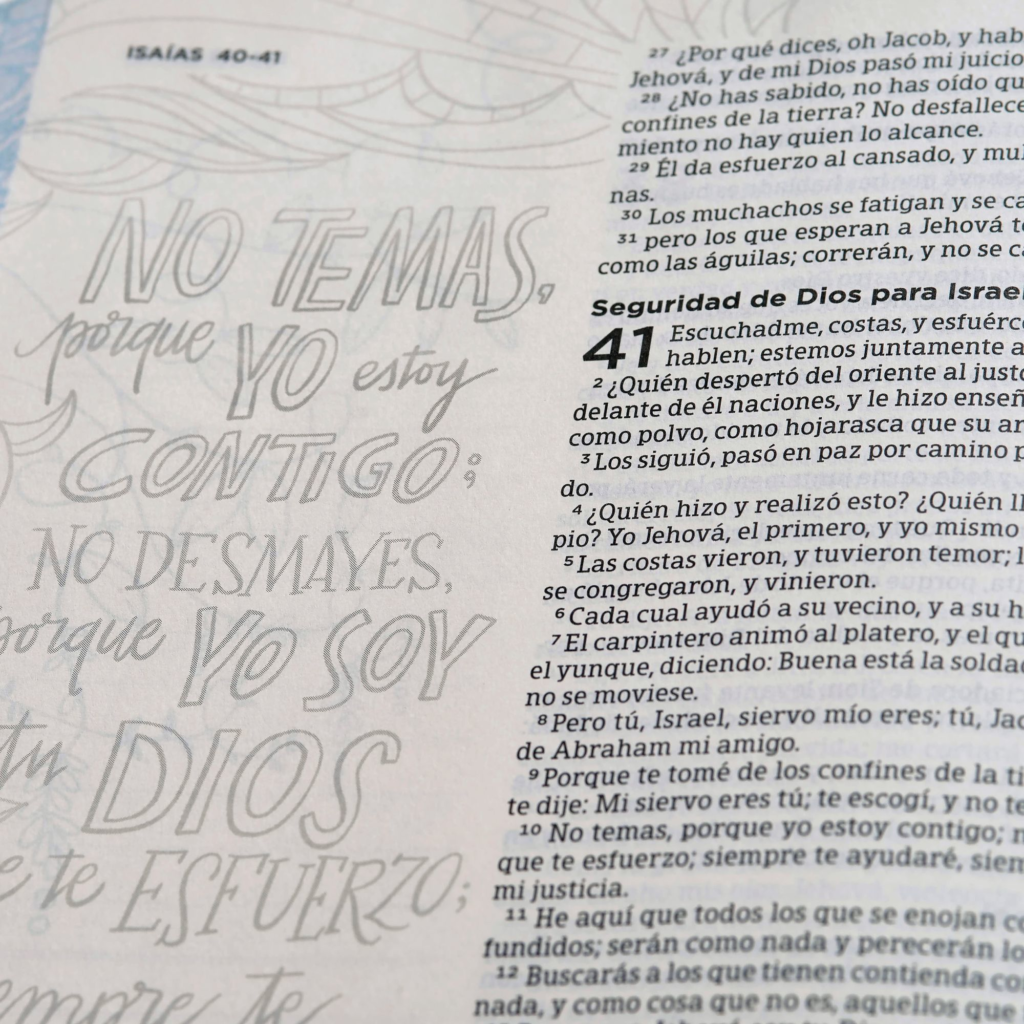 ISAÍAS 40-41
NO TEMAS,
porque YO estoy
CONTIGO;
NO DESMAYES,
porque YO SOY
tu DIOS
te ESFUERZO;
te
27 ¿Por qué dices, oh Jacob, y
Jehová, y de mi Dios pasó mi juicio
28 ¿No has sabido, no has oído
confines de la tierra? No
miento no hay quien lo alcance.
29 Él da esfuerzo al cansado, y
nas.
30 Los muchachos se fatigan y se
31 pero los que esperan a Jehová
como las águilas; correrán, y no se
Seguridad de Dios para Israel
41 Escuchadme, costas, y
hablen; estemos juntamente a
2 ¿Quién despertó del oriente al
delante de él naciones, y le hizo
como polvo, como hojarasca que su
3 Los siguió, pasó en paz por camino
do.
4 ¿Quién hizo y realizó esto? ¿Quién
pio? Yo Jehová, el primero, y yo mismo
5 Las costas vieron, y tuvieron temor;
se congregaron, y vinieron.
6 Cada cual ayudó a su vecino, y a su
7 El carpintero animó al platero, y el
el yunque, diciendo: Buena está la
no se moviese.
8 Pero tú, Israel, siervo mío eres; tú,
de Abraham mi amigo.
9 Porque te tomé de los confines de la
te dije: Mi siervo eres tú; te escogí, y no
10 No temas, porque yo estoy contigo;
que te esfuerzo; siempre te ayudaré,
mi justicia.
11 He aquí que todos los que se enojan
fundidos; serán como nada y perecerán
12 Buscarás a los que tienen contienda
nada, y como cosa que no es, aquellos que